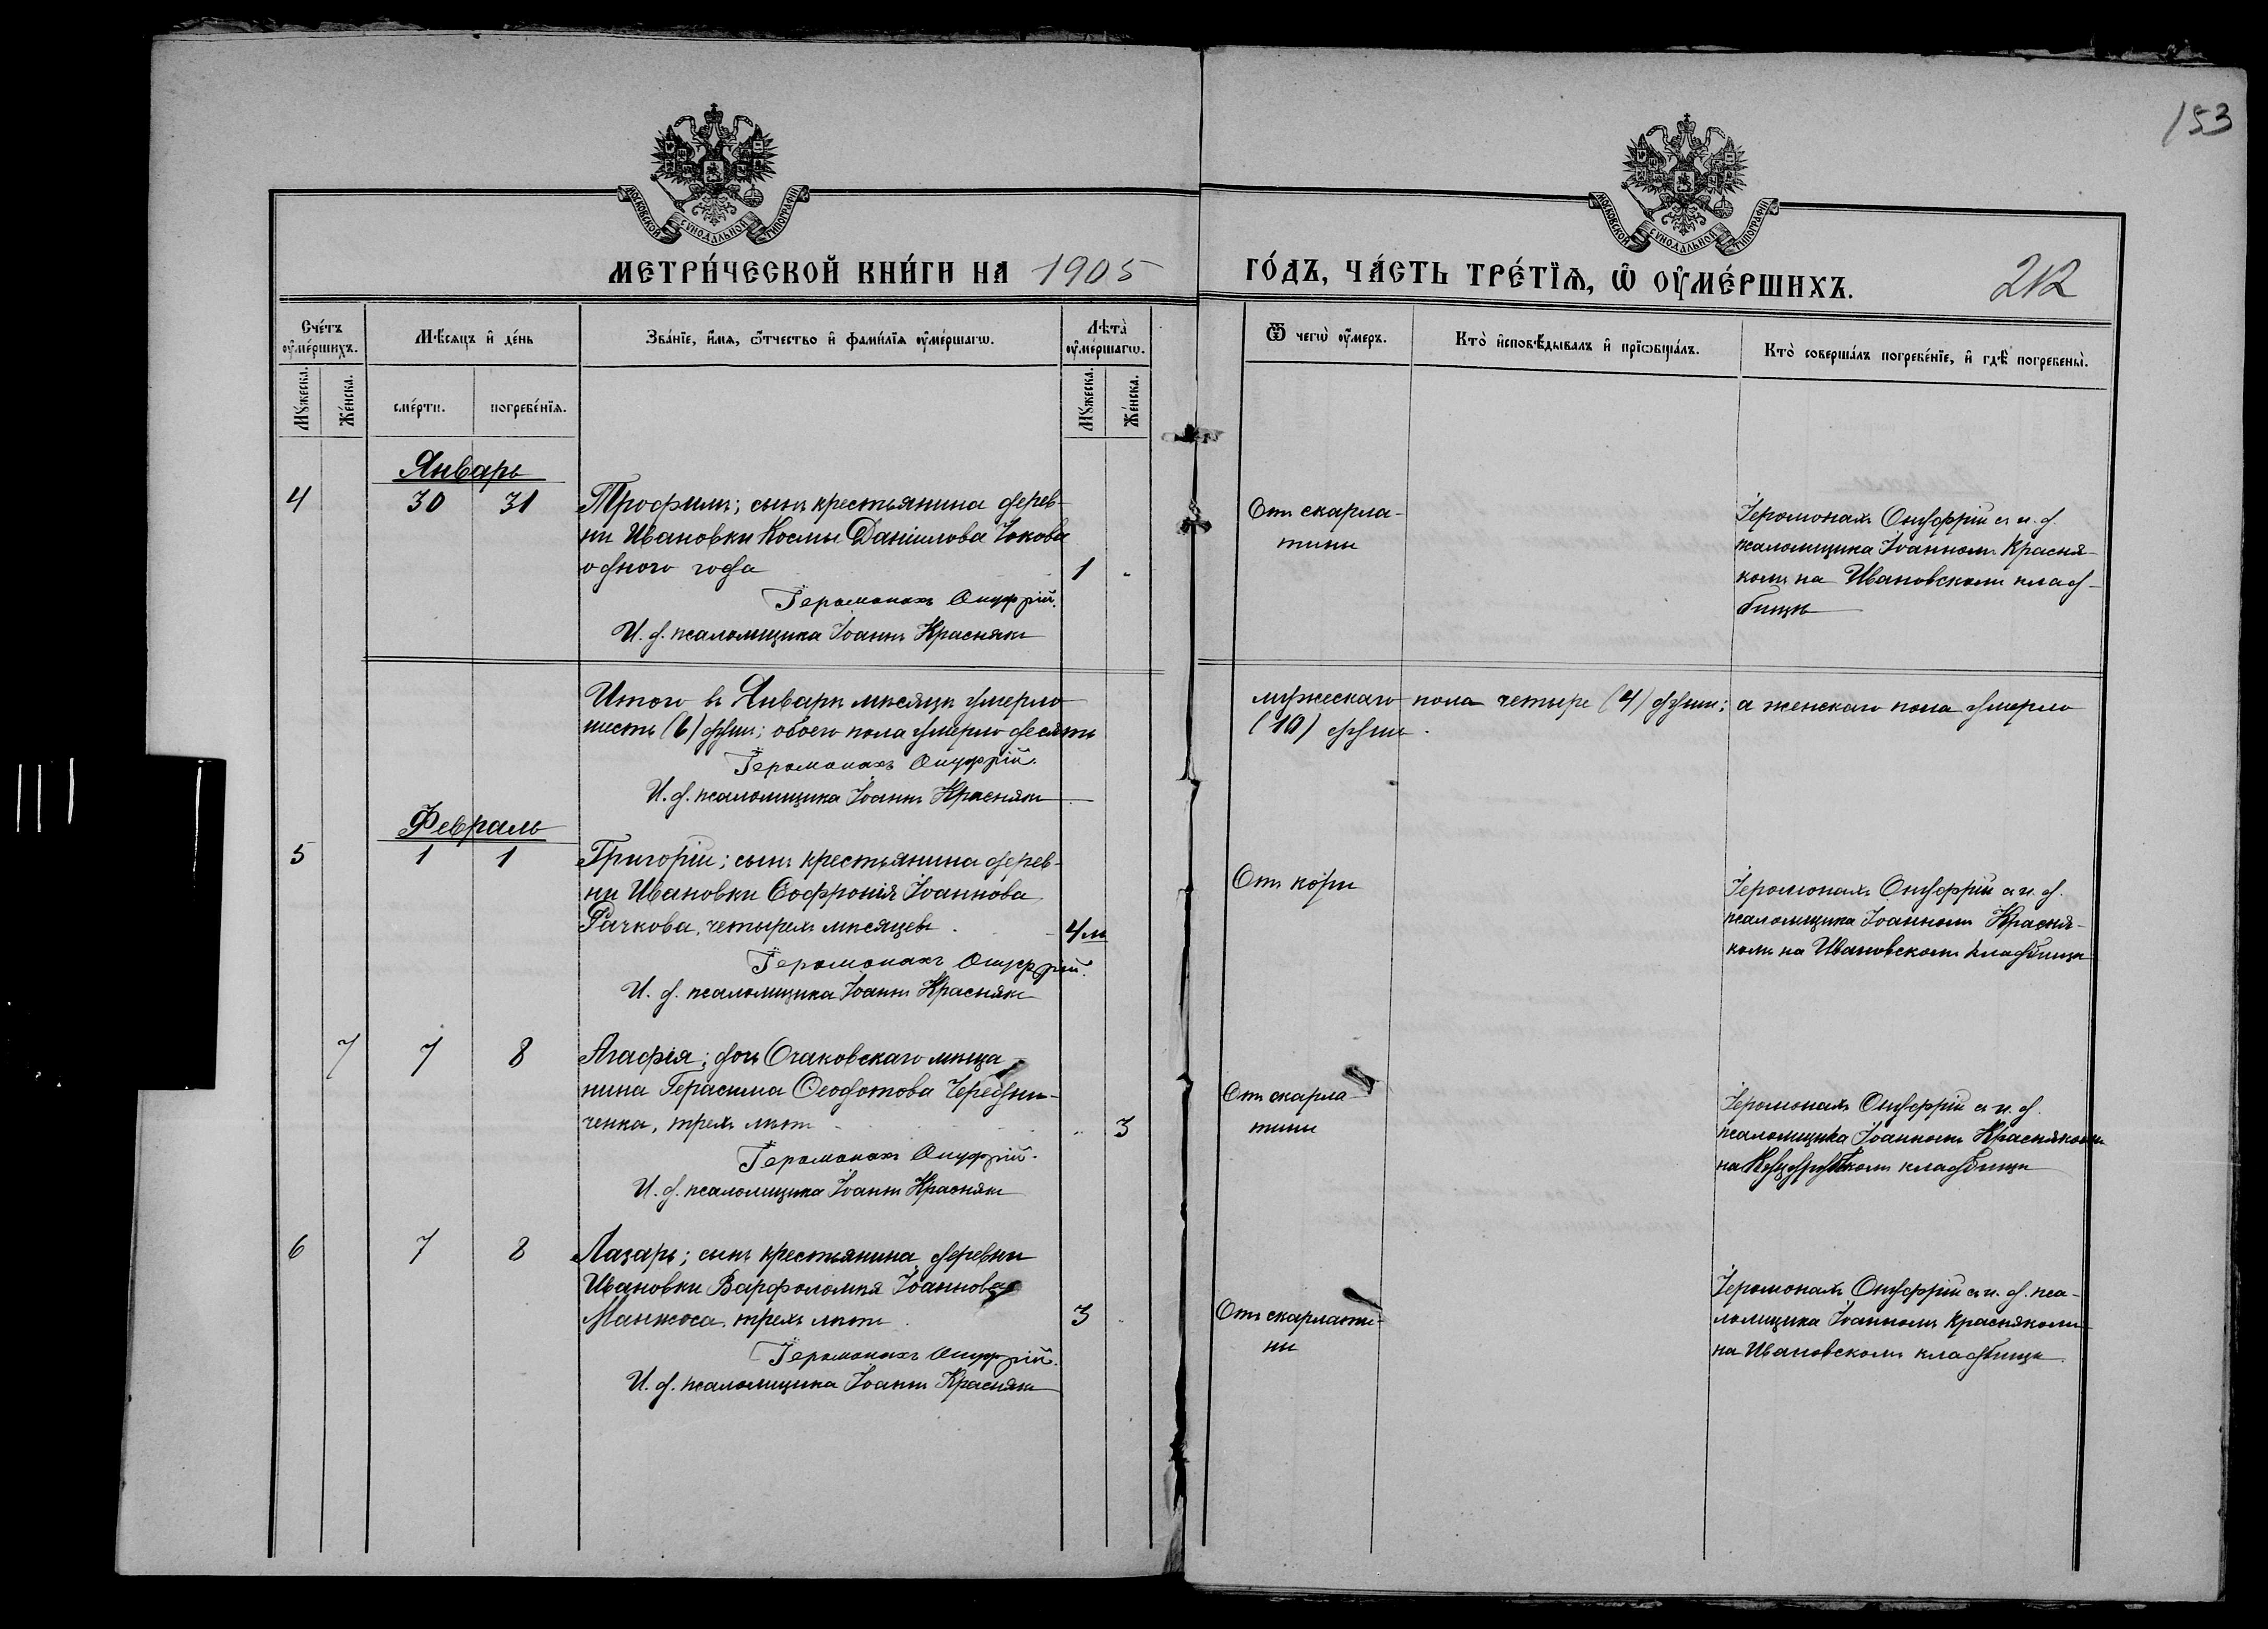 153
МОСКОВСКОЙ СУНОДАЛЬНОЙ ТИПОГРАФІИ
МОСКОВСКОЙ СУНОДАЛЬНОЙ ТИПОГРАФІИ
МЕТРИ́ЧЕСКОЙ КНИ́ГИ НА 1905
ГО́ДЪ, ЧА́СТЬ ТРЕ́ТЇѦ, Ѡ ОУМЕ́РШИХЪ.
212
Сче́тъ оумершихъ.
Мѣсяцъ и де́нь
Зва́нїе, имя, ѻтчество и фами́лїя оуме́ршагѡ.
Лѣта̀ оуме́ршагѡ.
Ѿ чегѡ̀ оумеръ.
Кто̀ исповѣдывалъ и прїѡбща́лъ.
Кто̀ соверша́лъ погребе́нїе, и гдѣ погребены̀.
Мꙋжеска.
Же́нска.
сме́рти.
погребе́нїя.
Мꙋжеска.
Же́нска.
Январь
4 30 31 Трофимъ; сынъ крестьянина дерев-
ни Ивановки Космы Даніилова
одного года 1
Іеромонахъ Онуфрій.
И. д. псаломщика Іоаннъ Краснякъ
Отъ скарла-
тины
Іеромонахъ Онуфрій съ и. д.
псаломщика Іоанномъ Красня-
комъ на Ивановскомъ клад-
бищѣ
Итого въ Январѣ мѣсяцѣ умерло мужескаго пола четыре (4) души; а женскаго пола умерло
шесть (6) душъ; обоего пола умерло десять (10) душъ.
Іеромонахъ Онуфрій.
И. д. псаломщика Іоаннъ Краснякъ
Февраль
5 1 1 Григорій; сынъ крестьянина дерев-
ни Ивановки Софронія Іоаннова
Рачкова, четырехъ мѣсяцевъ 4 м
Іеромонахъ Онуфрій.
И. д. псаломщика Іоаннъ Краснякъ
Отъ кори
Іеромонахъ Онуфрій съ и. д.
псаломщика Іоанномъ Красня-
комъ на Ивановскомъ кладбищѣ
7 7 8 Агафія; дочь Очаковскаго мѣща-
нина Герасима Ѳеодотова Чередни-
ченка, трехъ лѣтъ 3
Іеромонахъ Онуфрій.
И. д. псаломщика Іоаннъ Краснякъ
Отъ скарла-
тины
Іеромонахъ Онуфрій съ и. д.
псаломщика Іоанномъ Краснякомъ
на кладбищѣ
6 7 8 Лазарь; сынъ крестьянина деревни
Ивановки Варфоломея Іоаннова
Манжоса, трехъ лѣтъ 3
Іеромонахъ Онуфрій.
И. д. псаломщика Іоаннъ Краснякъ
Отъ скарлати-
ны
Іеромонахъ Онуфрій съ и. д. пса-
ломщика Іоанномъ Краснякомъ
на Ивановскомъ кладбищѣ.